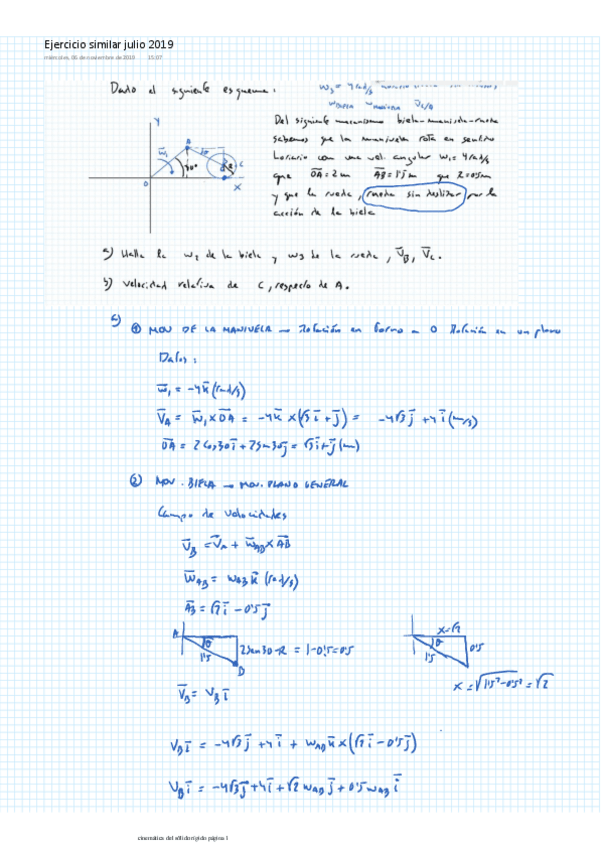 Ejercicio similar julio 2019
miércoles, 06 de noviembre de 2019 15:07
Dado el siguiente esquema:
Del siguiente mecanismo biela-manivela-rueda
sabemos que la manivela rota en sentido
horario con una vel. angular w₁=4rad/s
que OA=2m AB=1'5m que R=0'5m
y que la rueda, rueda sin deslizar por la
acción de la biela
Y
A
w₁
30°
C
O
X
a) Halla la w₂ de la biela y w₃ de la rueda, V̄B, V̄C.
b) Velocidad relativa de C, respecto de A.
a)
① MOV DE LA MANIVELA → Rotación en torno a O Rotación en un plano
Datos:
w̄₁ = -4k̄ (rad/s)
V̄A = w̄₁×OA = -4k̄ ×(√3 ī + j̄) = -4√3 j̄ + 4 ī (m/s)
OA = 2cos30 ī + 2sen30 j̄ = √3 ī + j̄ (m)
② MOV. BIELA → MOV. PLANO GENERAL
Campo de velocidades
V̄B = V̄A + w̄AB × AB
w̄AB = wAB k̄ (rad/s)
AB = √2 ī - 0'5 j̄
A
θ
1'5
2sen30-R = 1-0'5=0'5
B
x=√2
θ
1'5
0'5
x = √1'5²-0'5² = √2
V̄B = VB ī
VB ī = -4√3 j̄ + 4 ī + wAB k̄ × (√2 ī - 0'5 j̄)
VB ī = -4√3 j̄ + 4 ī + √2 wAB j̄ + 0'5 wAB ī
cinemática del sólido rígido página 1